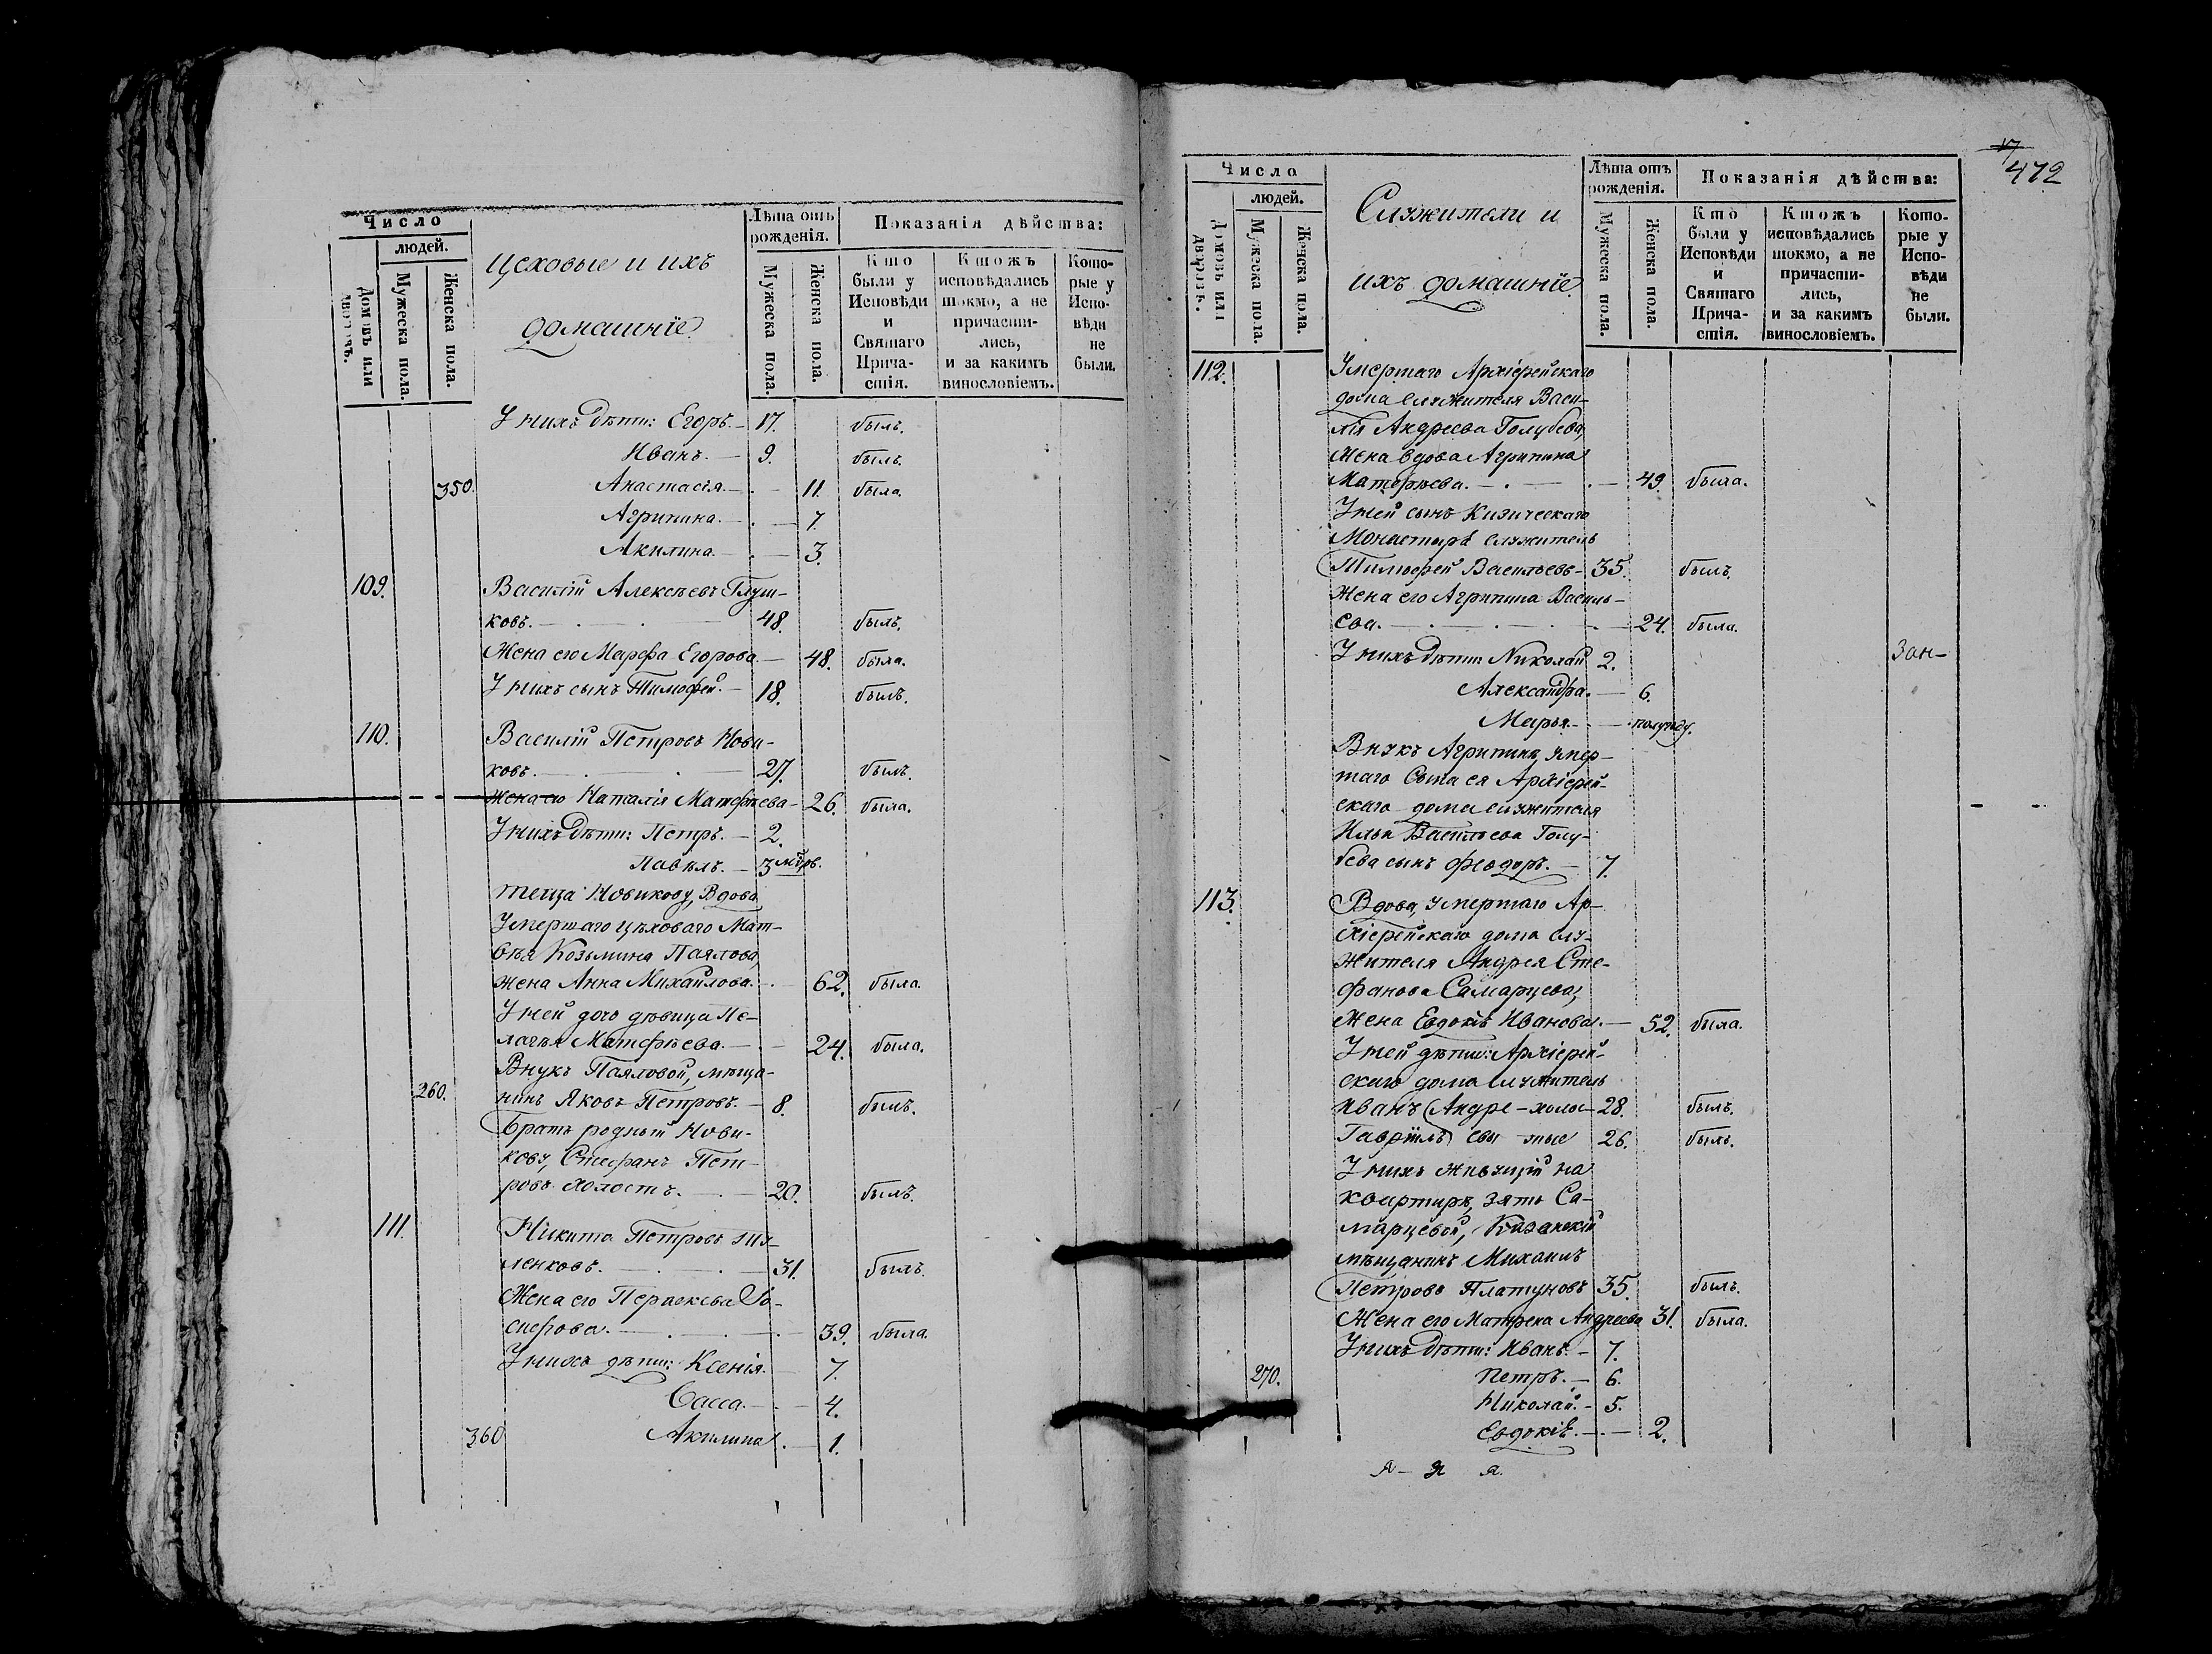 Число
людей.
Домовъ или дворовъ.
Мужеска пола.
Женска пола.
Цеховые и ихъ
домашніе
Лѣта отъ
рожденія.
Мужеска пола.
Женска пола.
Показанія дѣйства:
Кто
были у
Исповѣди
и
Святаго
Прича-
стія.
Ктожъ
исповѣдались
токмо, а не
причасти-
лись,
и за какимъ
винословіемъ.
Кото-
рые у
Испо-
вѣди
не
были.
У нихъ дѣти: Егоръ. 17. былъ.
Иванъ. 9. былъ.
350. Анастасія. 11. была.
Агрипина. 7.
Акилина. 3.
109. Василій Алексѣевъ Глуш-
ковъ. 48. былъ.
Жена его Марфа Егорова. 48. была.
У нихъ сынъ Тимофей. 18. былъ.
110. Василій Петровъ Нови-
ковъ. 27. былъ.
Жена его Наталія Матфѣева 26. была.
У нихъ дѣти: Петръ. 2.
Павелъ. 3 мѣс.
Теща Новикову, Вдова
Умершаго цѣховаго Мат-
вѣя Козьмина Паялова,
жена Анна Михайлова. 62. была.
У ней дочь дѣвица Пе-
лагѣя Матфѣева. 24. была.
Внукъ Паяловой, мѣща-
260. нинъ Яковъ Петровъ. 8. былъ.
Братъ родный Нови-
кову, Стефанъ Пет-
ровъ холостъ. 20. былъ.
111. Никита Петровъ
ленковъ. 31. былъ.
Жена его
сифова. 39. была.
У нихъ дѣти: Ксенія. 7.
Васса. 4.
360 Акилина. 1.
17
472
Число
людей.
Домовъ или дворовъ.
Мужеска пола.
Женска пола.
Служители и
ихъ домашніе.
Лѣта отъ
рожденія.
Мужеска пола.
Женска пола.
Показанія дѣйства:
Кто
были у
Исповѣди
и
Святаго
Прича-
стія.
Ктожъ
исповѣдались
токмо, а не
причасти-
лись,
и за какимъ
винословіемъ.
Кото-
рые у
Испо-
вѣди
не
были.
112. Умершаго Архіерейскаго
дома служителя Васи-
лія Андреева Голубева,
жена вдова Агрипина
Матфѣева. 49. была.
У ней сынъ Кизическаго
Монастыря служитель
Тимофей Васильевъ 35. былъ.
Жена его Агрипина Василь-
ева. 24. была.
У нихъ дѣти: Николай 2. Зан-
Александра. 6.
Марья. полугоду.
Внукъ Агрипины, умер-
шаго сына ея Архіерей-
скаго дома служителя
Ильи Васильева Голу-
бева сынъ Феодоръ. 7.
113. Вдова, умершаго Ар-
хіерейскаго дома слу-
жителя Андрея Сте-
фанова Самарцева,
Жена Евдокія Иванова. 52. была.
У ней дѣти: Архіерей-
скаго дома служитель
Иванъ Андре- холос- 28. былъ.
Гавріилъ евы тые 26. былъ.
У нихъ живущій на
квартирѣ, зять Са-
марцевой, Казанскій
мѣщанинъ Михаилъ
Петровъ Платуновъ 35. былъ.
Жена его Матрена Андреева 31. была.
У нихъ дѣти: Иванъ. 7.
270. Петръ. 6.
Николай. 5.
Евдокія. 2.